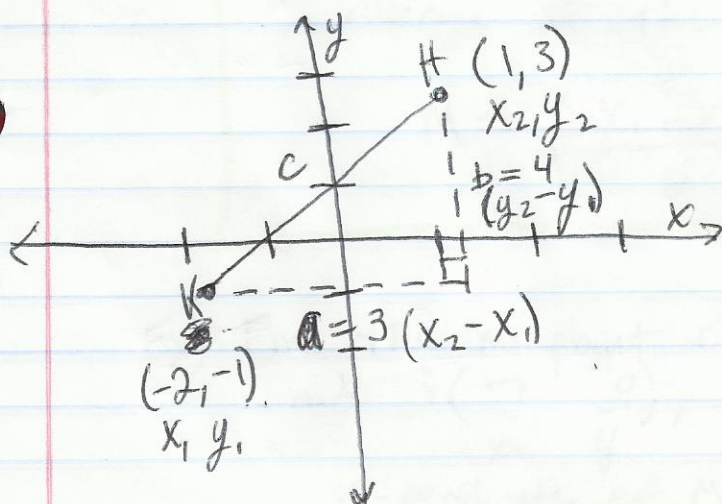 y
H (1,3)
x₂, y₂
C
b = 4
(y₂-y₁)
x
K
a = 3 (x₂-x₁)
(-2,-1)
x₁ y₁